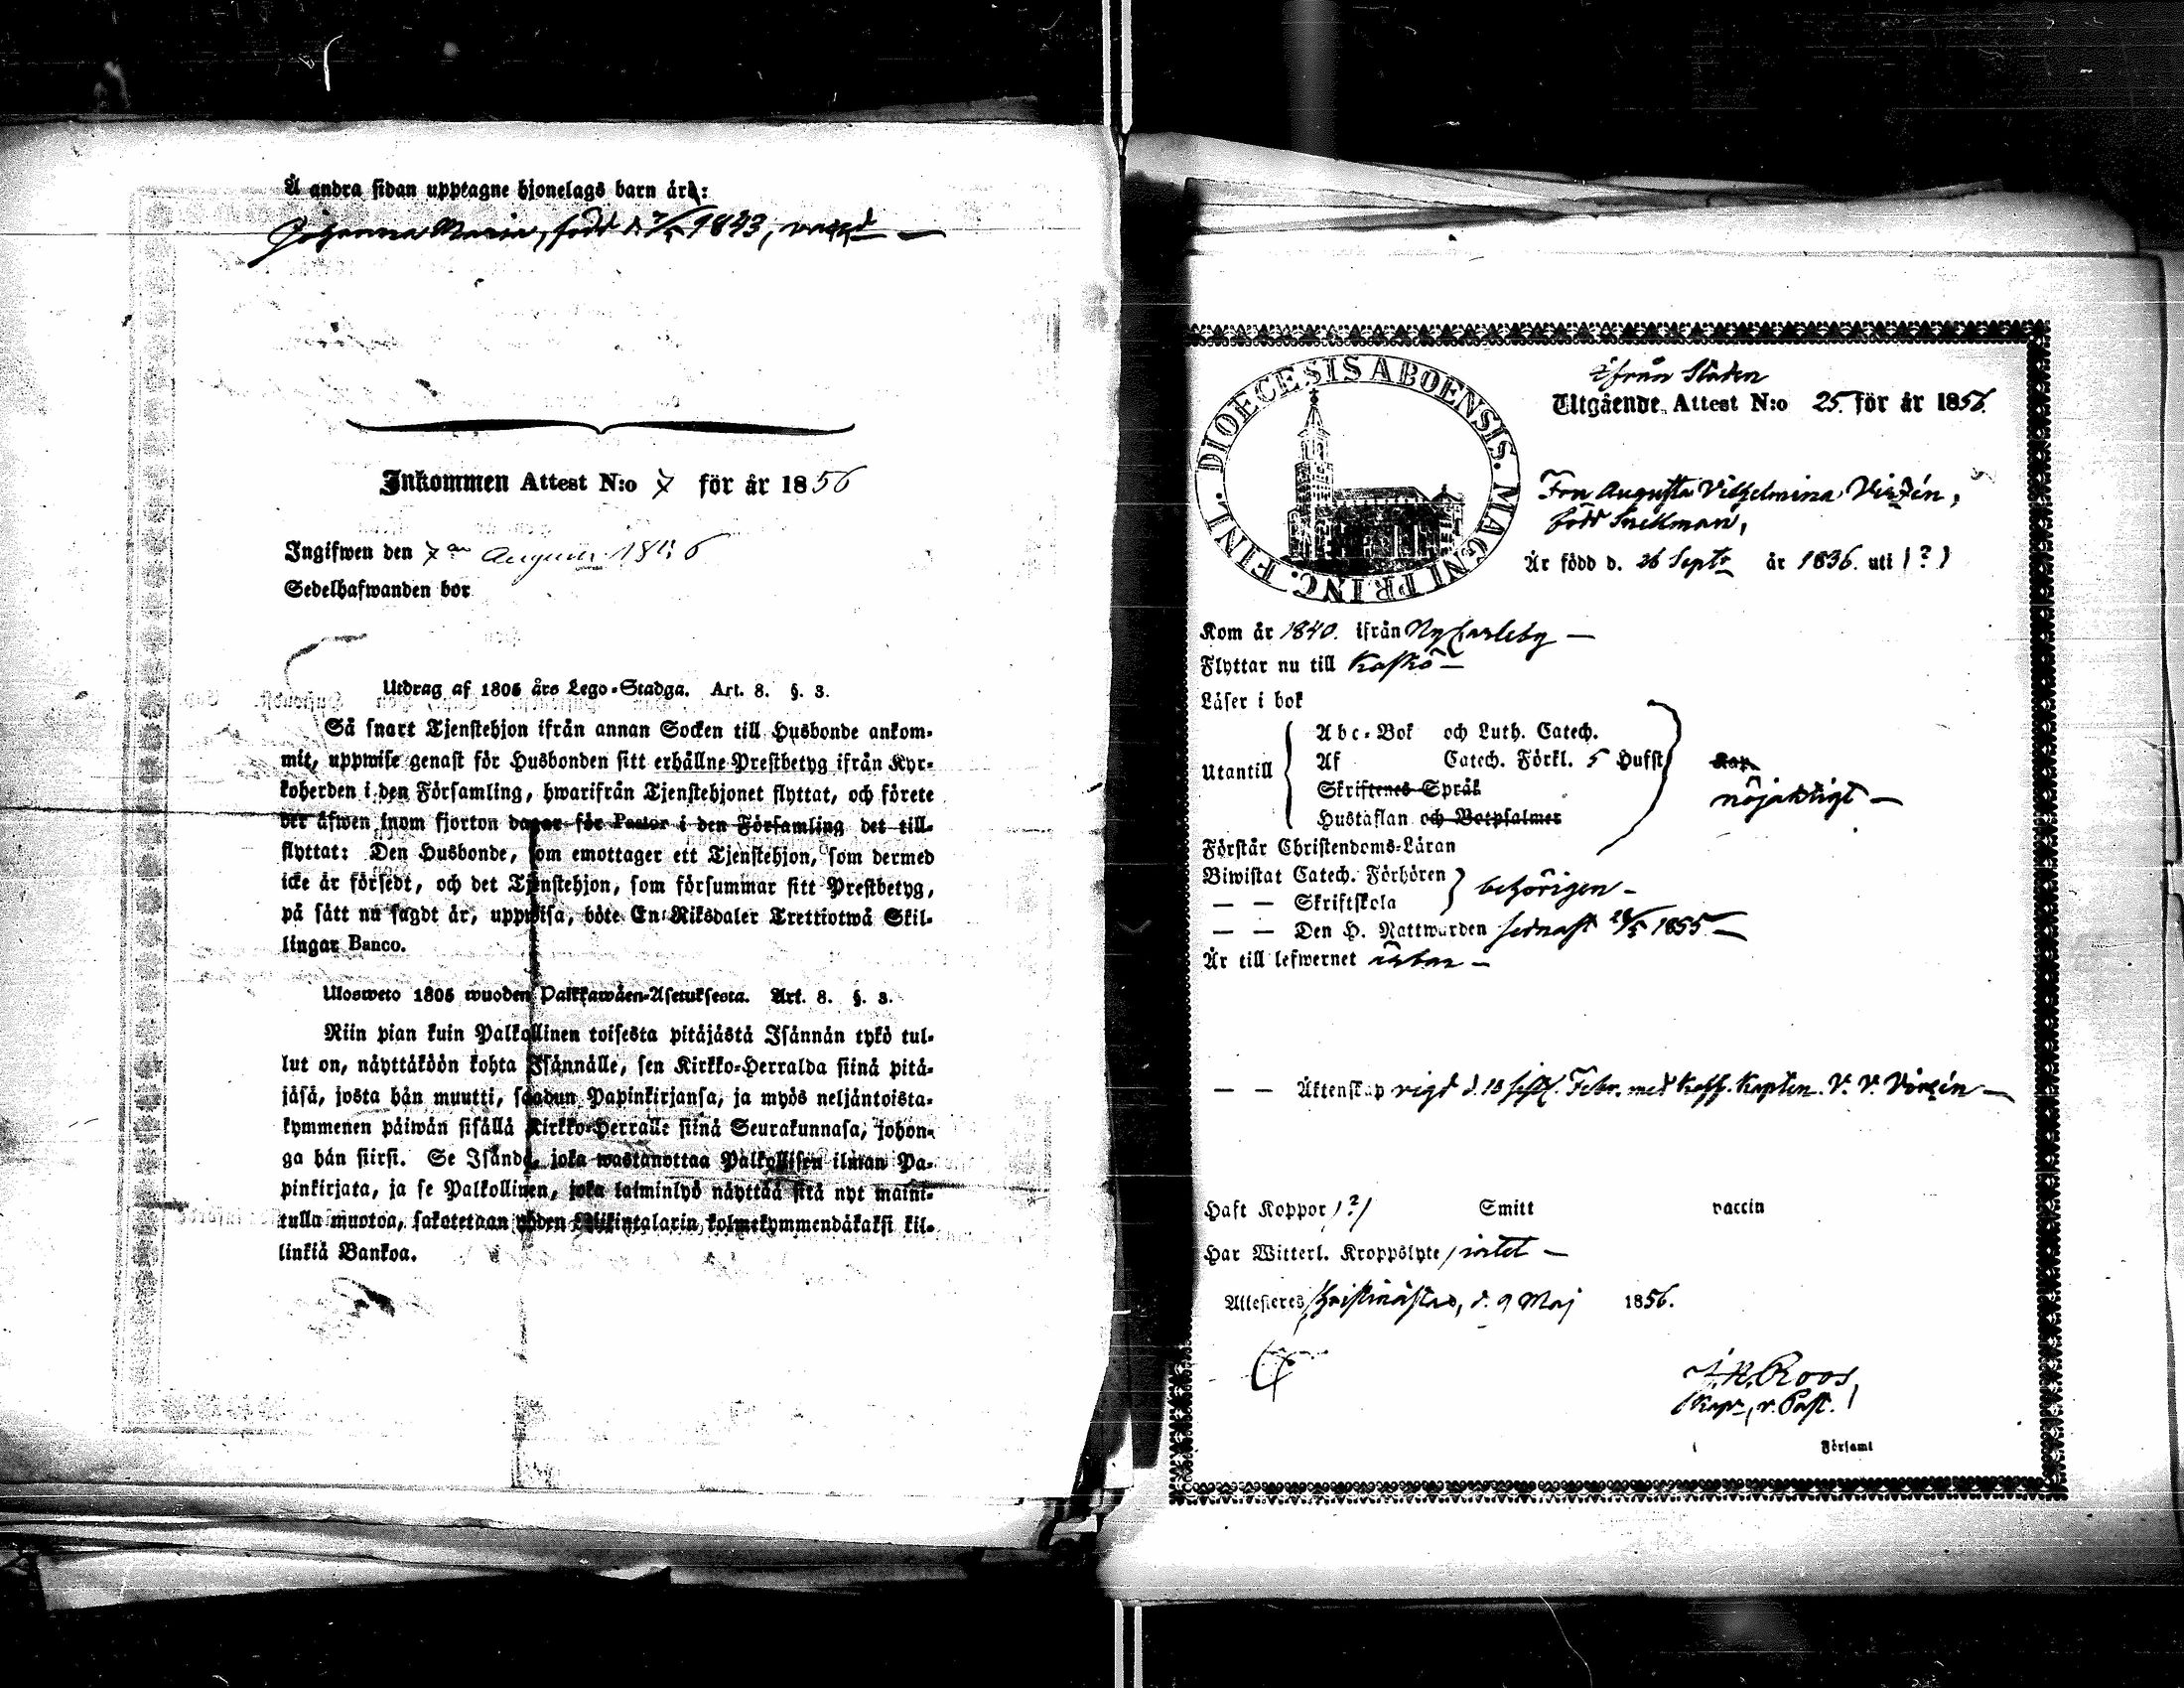 Å andra sidan upptagne hjonelags barn är:
Johanna Maria, född d. 1843, vacc.d —
Inkommen Attest N:o 7 för år 1856
Ingifwen den 7 Augusti 1856
Sedelhafwanden bor
Utdrag af 1805 års Lego-Stadga. Art. 8. §. 3.
Så snart Tjenstehjon ifrån annan Socken till Husbonde ankom-
mit, uppwise genast för Husbonden sitt erhållne Prestbetyg ifrån Kyr-
koherden i den Församling, hwarifrån Tjenstehjonet flyttat, och förete
det äfwen inom fjorton dagar för Pastor i den Församling det till-
flyttat: Den Husbonde, som emottager ett Tjenstehjon, som dermed
icke är försedt, och det Tjenstehjon, som försummar sitt Prestbetyg,
på sätt nu sagdt är, uppwisa, böte En Riksdaler Trettiotwå Skil-
lingar Banco.
Ulosweto 1805 wuoden Palkkawäen-Asetuksesta. Art. 8. §. 3.
Niin pian kuin Palkollinen toisesta pitäjästä Isännän tykö tul-
lut on, näyttäköön kohta Isännälle, sen Kirkko-Herralda siinä pitä-
jäsä, josta hän muutti, saadun Papinkirjansa, ja myös neljäntoista-
kymmenen päiwän sisällä Kirkko-Herralle siinä Seurakunnasa, johon-
ga hän siirsi. Se Isändä, joka wastanottaa Palkollisen ilman Pa-
pinkirjata, ja se Palkollinen, joka laiminlyö näyttää sitä nyt maini-
tulla muotoa, sakotetaan yhden Riikintalarin kolmekymmendäkaksi kil-
linkiä Bankoa.
DIOECESIS ABOENSIS. MAGNI PRINC. FINL.
ifrån Staden
Utgående Attest N:o 25. för år 1856.
Fru Augusta Vilhelmina Virzén,
född Snellman,
Är född d. 26 Septr år 1836. uti (?)
Kom år 1840. ifrån Ny Carleby —
Flyttar nu till Kaskö —
Läser i bok
Utantill
Abc-Bok och Luth. Catech.
Af Catech. Förkl. 5 Hufst
Skriftenes Språk
Hustaflan och Botpsalmer
nöjaktigt —
Förstår Christendoms-Läran
Biwistat Catech. Förhören
— — Skriftskola
behörigen —
— — Den H. Nattwarden sednast 1855 —
Är till lefwernet ärbar —
— — Äktenskap vigd d. 13 sistl. Febr. med Koff. Kapten. V. V. Virzén —
Haft Koppor (?) Smitt vaccin
Har Witterl. Kroppslyte, intet —
Attesteres Christinæstad, d. 9 Maj 1856.
Roos,
Kapn, v. Past.
Församl